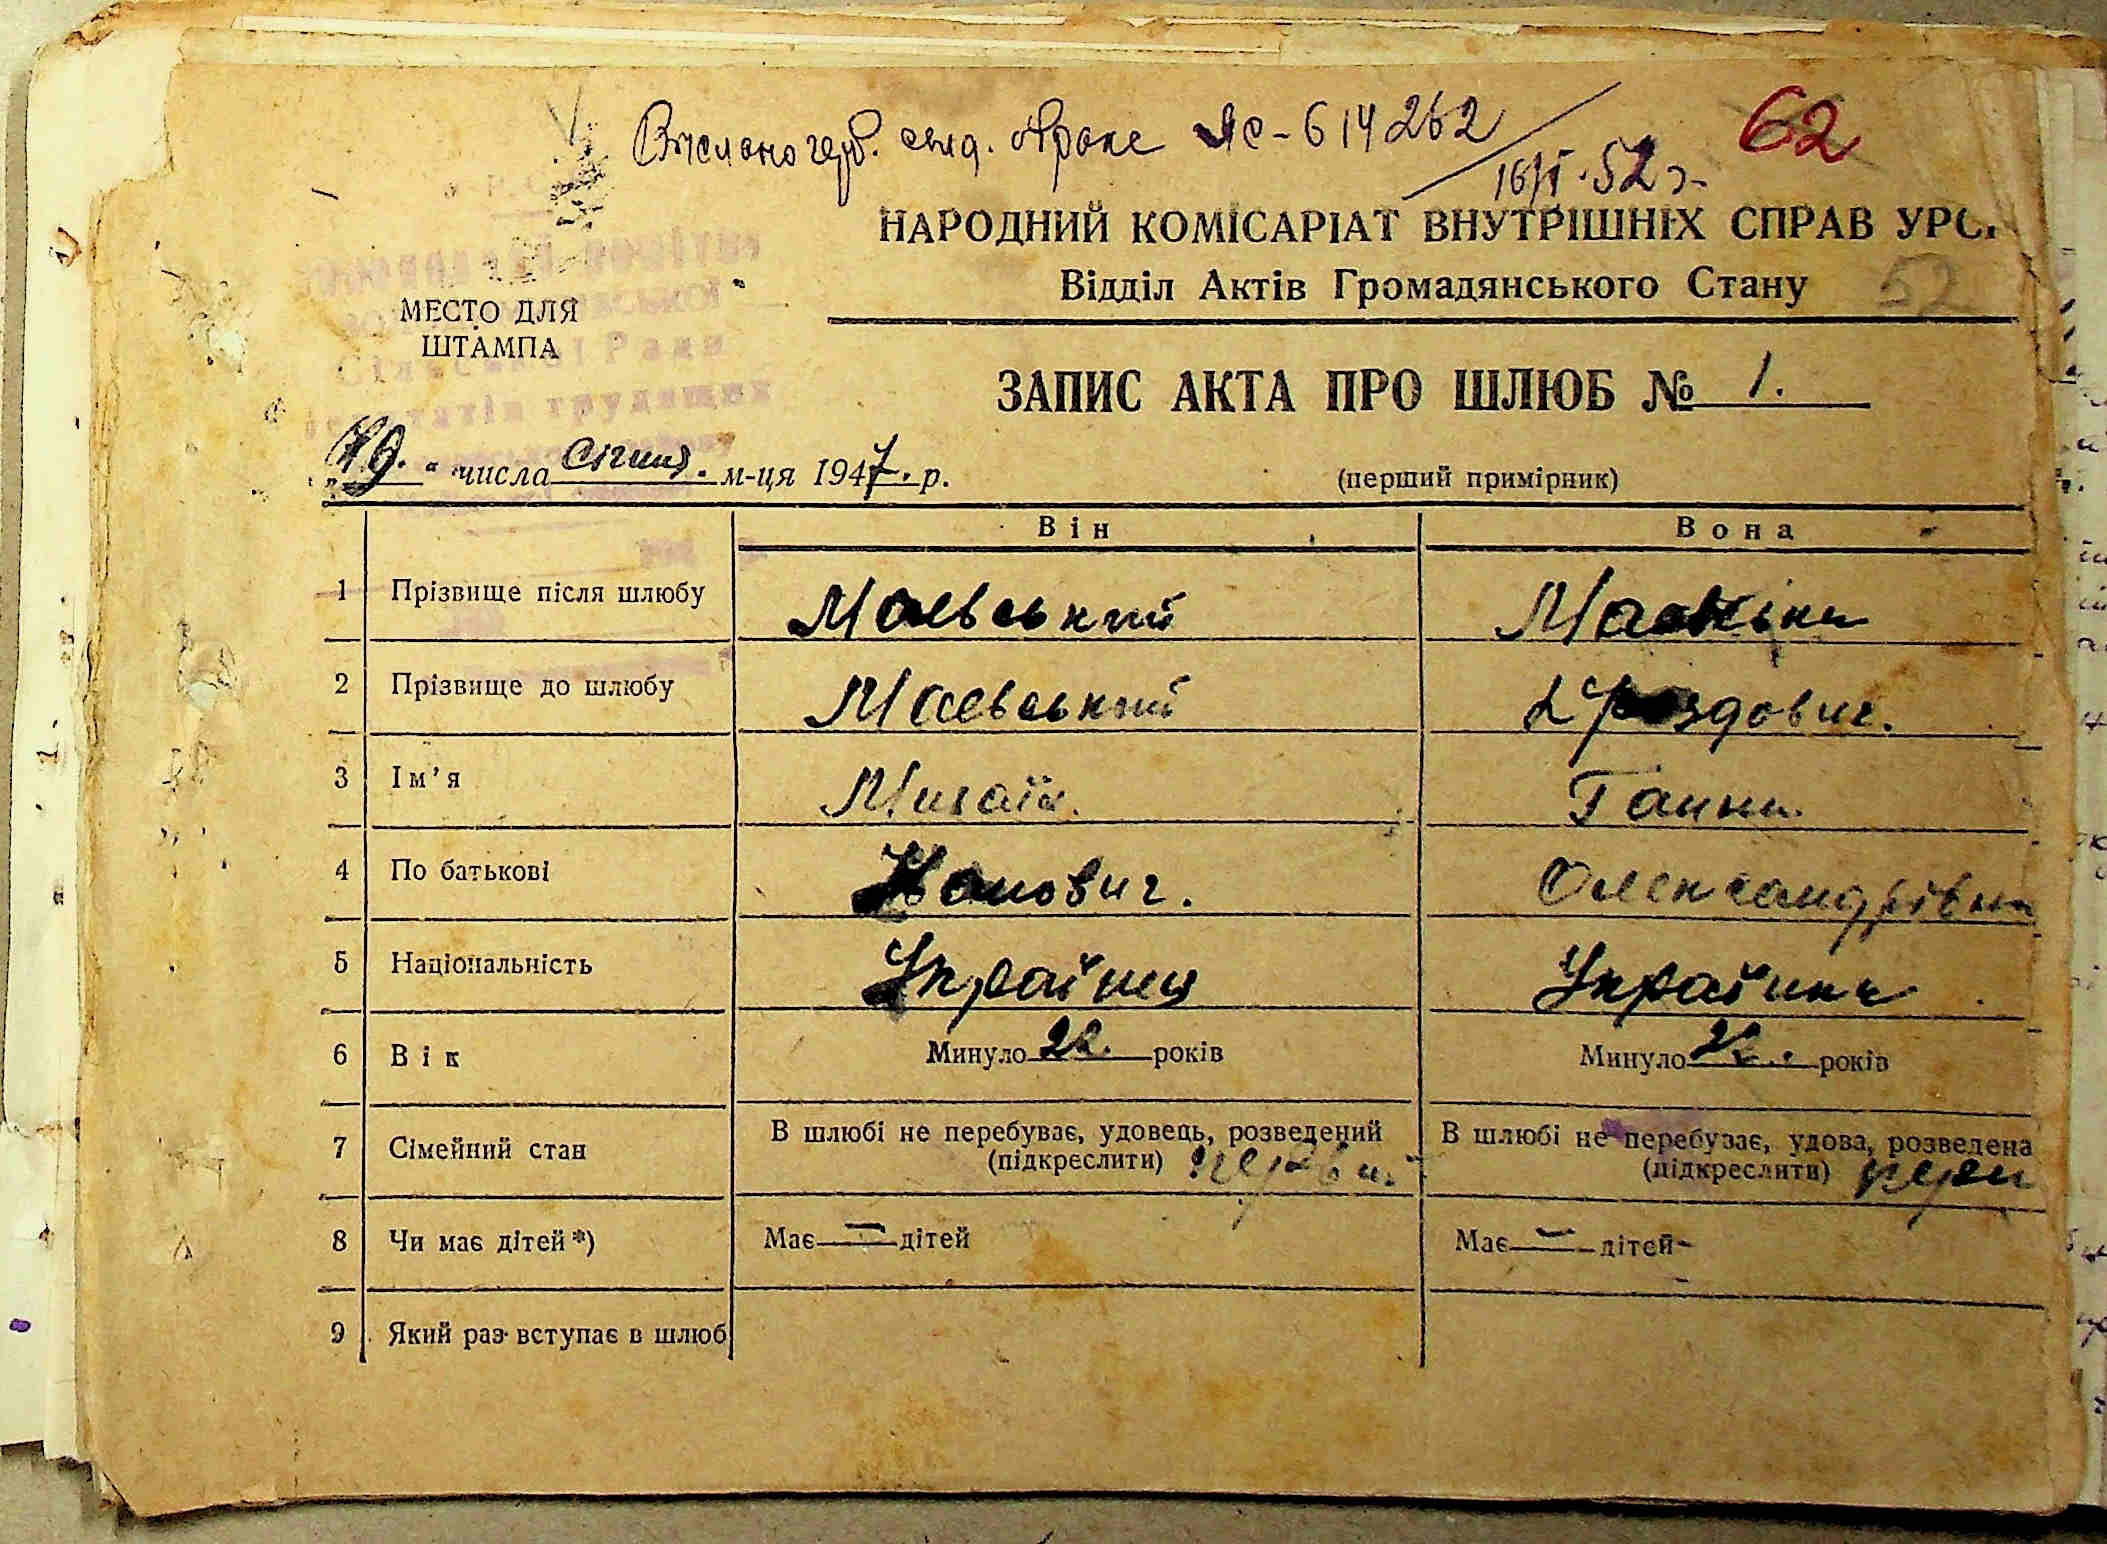 свид. о браке ЯС-614262
16/I-52 г.
62
НАРОДНИЙ КОМІСАРІАТ ВНУТРІШНІХ СПРАВ УРС
Відділ Актів Громадянського Стану
52
МЕСТО ДЛЯ
ШТАМПА
Сільської Ради
депутатів трудящих
ЗАПИС АКТА ПРО ШЛЮБ № 1.
числа січня. м-ця 1947. р.
(перший примірник)
Він Вона
1 Прізвище після шлюбу Маєвський
2 Прізвище до шлюбу Маєвський Дроздович.
3 Ім'я Михаїл. Ганна.
4 По батькові Іванович. Олександрівна
5 Національність Українец Українка
6 Вік Минуло 22. років Минуло років
7 Сімейний стан В шлюбі не перебуває, удовець, розведений (підкреслити) В шлюбі не перебуває, удова, розведена (підкреслити)
8 Чи має дітей*) Має — дітей Має — дітей
9 Який раз вступає в шлюб